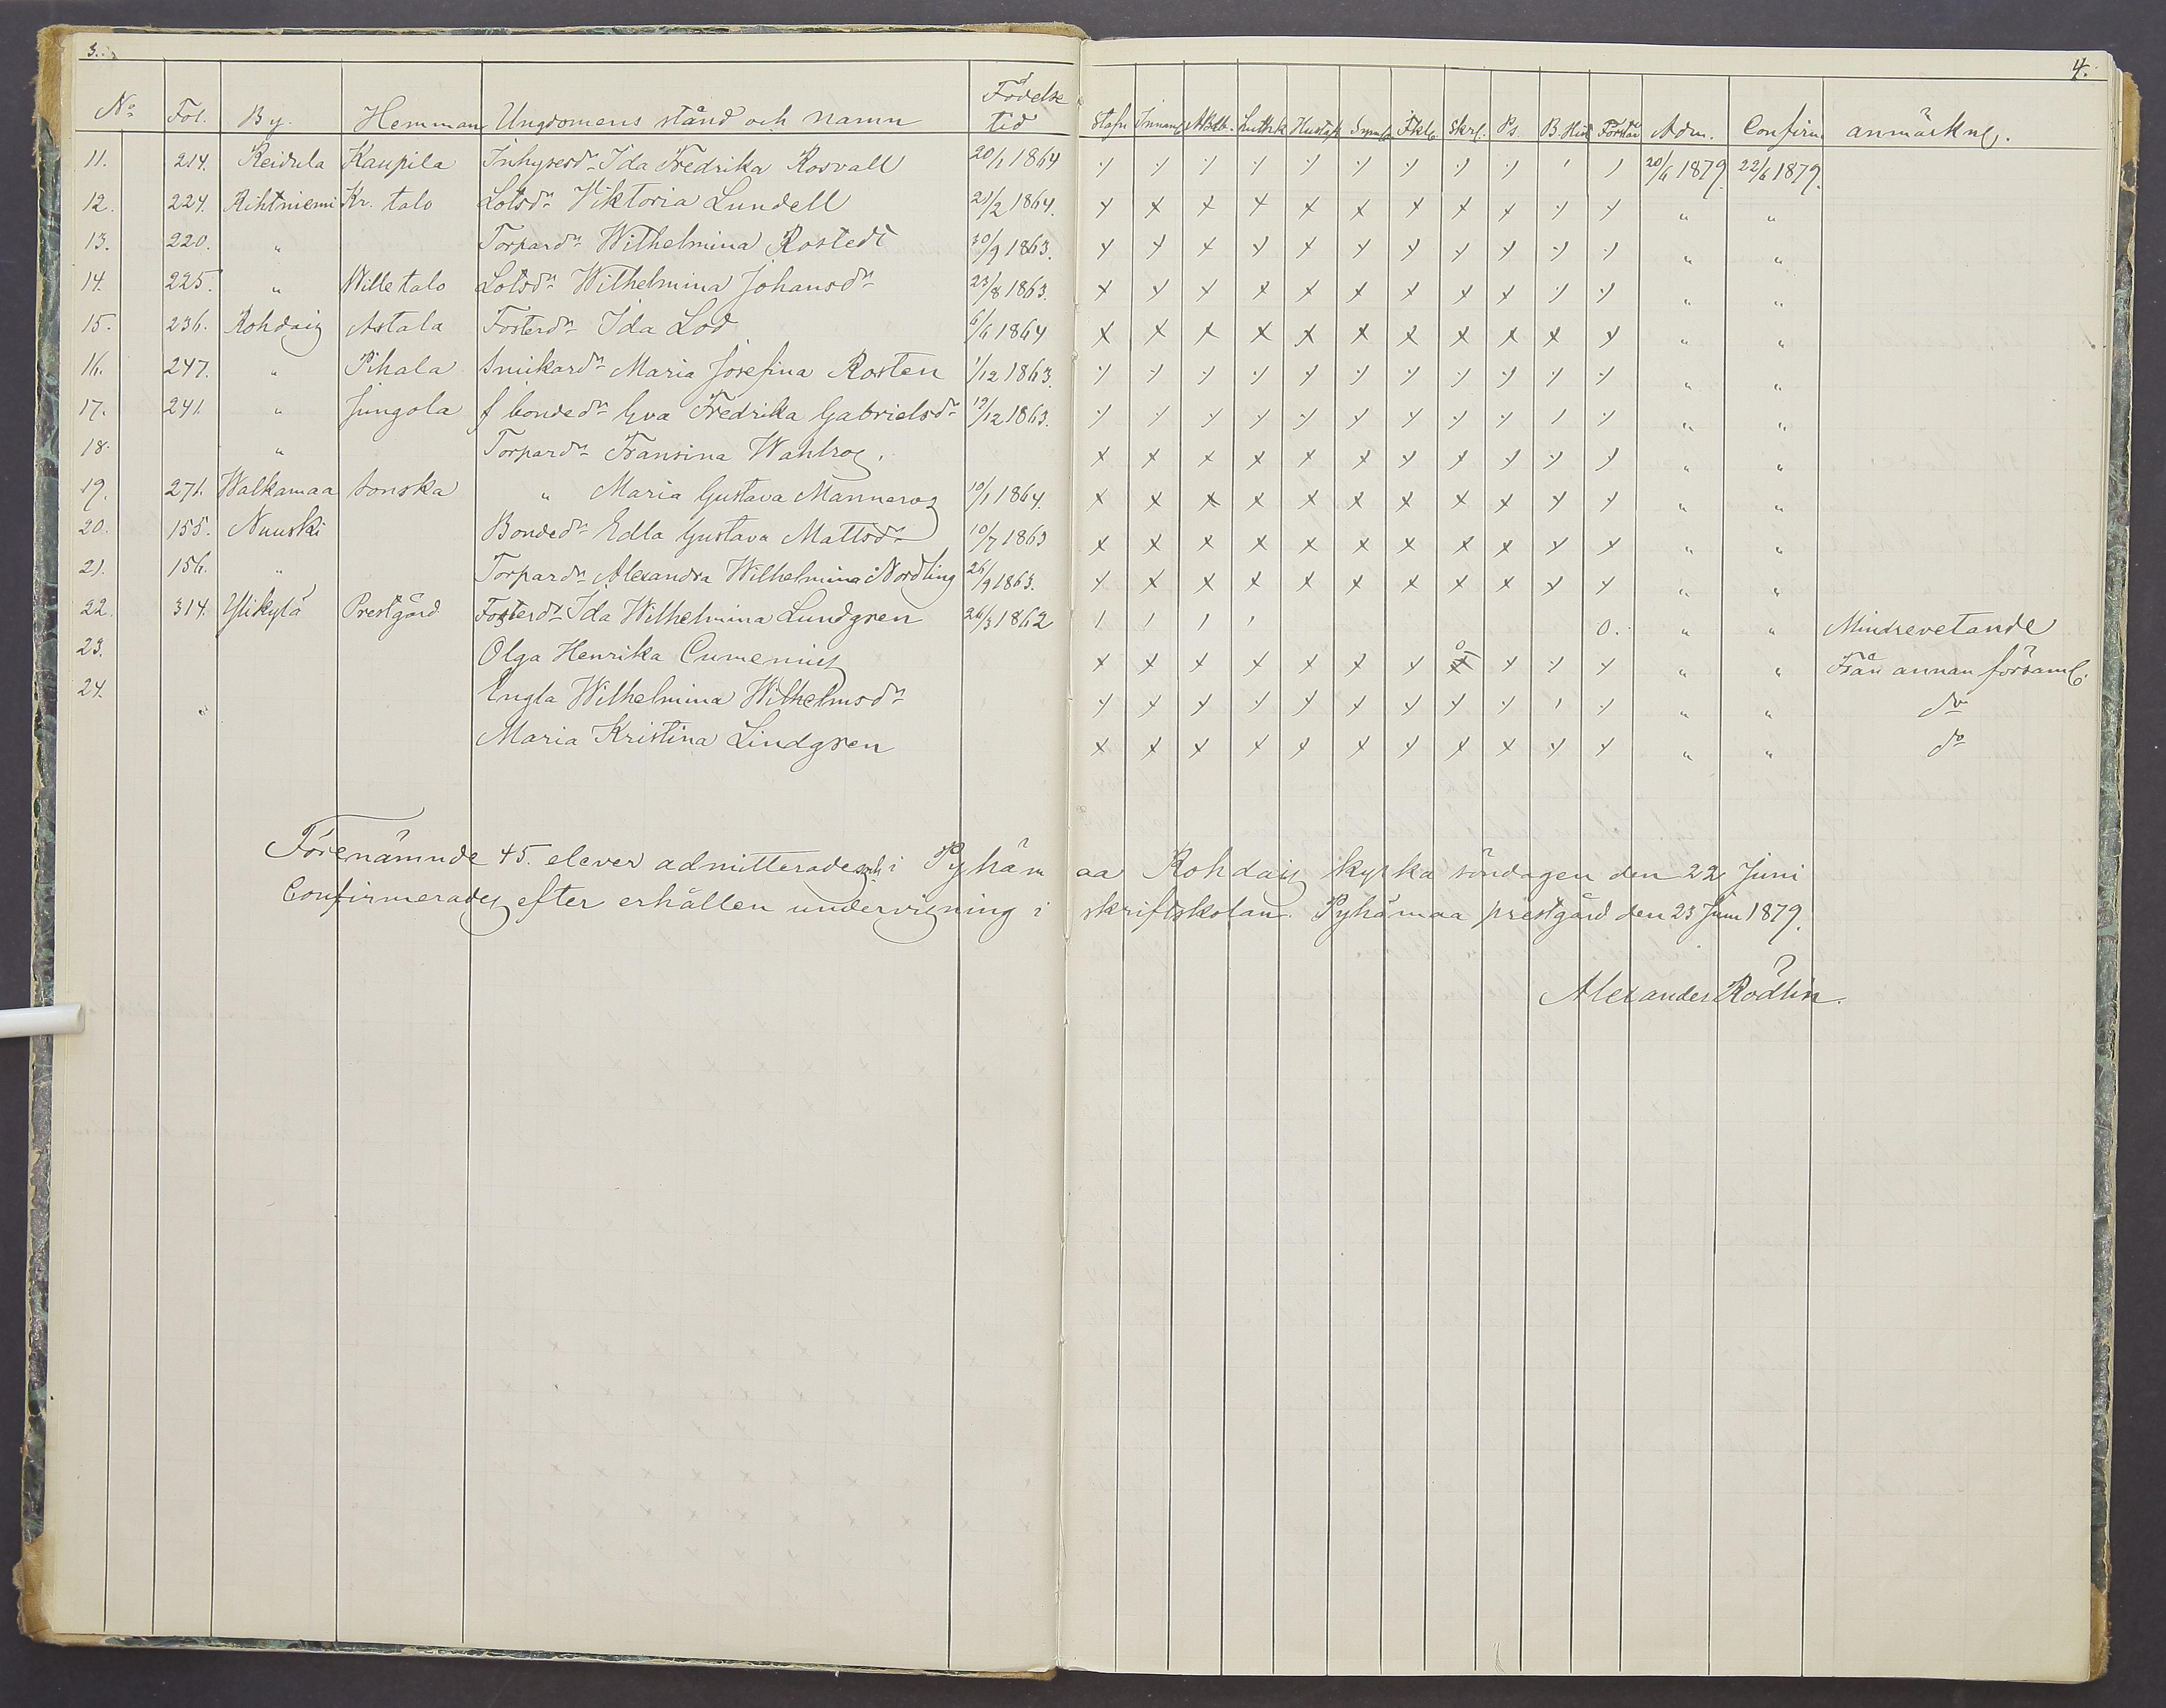 3.
4.
No Fol. By. Hemman Ungdomens stånd och namn Födelse tid Stafn Innanl Luth.k Hustafl Symb Skrl. Ps. B. Hist Förstån Adm. Confirm anmärkng.
11. 214. Reidula Kaupila Inhysesdr Ida Fredrika Rosvall 20/1 1864 20/6 1879. 22/6 1879.
12. 224. Rihtniemi Kr. talo Lotsdr Viktoria Lundell 21/2 1864. " "
13. 220. " Torpardr Wilhelmina Rostedt 30/9 1863. " "
14. 225. " Wille talo Lotsdr Wilhelmina Johansdr 23/8 1863. " "
15. 236. Rohdais Astala Fosterdr Ida Lod 6/6 1864 " "
16. 247. " Pihala Snickardr Maria Josefina Rosten 1/12 1863. " "
17. 241. " Jungola f bondedr Eva Fredrika Gabrielsdr 19/12 1863. " "
18. " Torpardr Fransina Wahlroos. " "
19. 271. Walkamaa Sonska " Maria Gustava Manneroos 10/1 1864. " "
20. 155. Nuuski Bondedr Edla Gustava Mattsdr 10/7 1863 " "
21. 156. " Torpardr Alexandra Wilhelmina Nordling 26/9 1863. " "
22. 314. Ylikylä Prestgård Fosterdr Ida Wilhelmina Lundgren 26/3 1862 0. " " Mindrevetande
23. Olga Henrika Cumenius " " Från annan församl.
24. Engla Wilhelmina Wilhelmsdr " " do
" Maria Kristina Lindgren " " do
Förenämnde 45. elever admitterades och i Pyhämaa Rohdais kyrka söndagen den 22 Juni
Confirmerades efter erhållen undervisning i skriftskolan. Pyhämaa prestgård den 23 Juni 1879.
Alexander Rödlin.